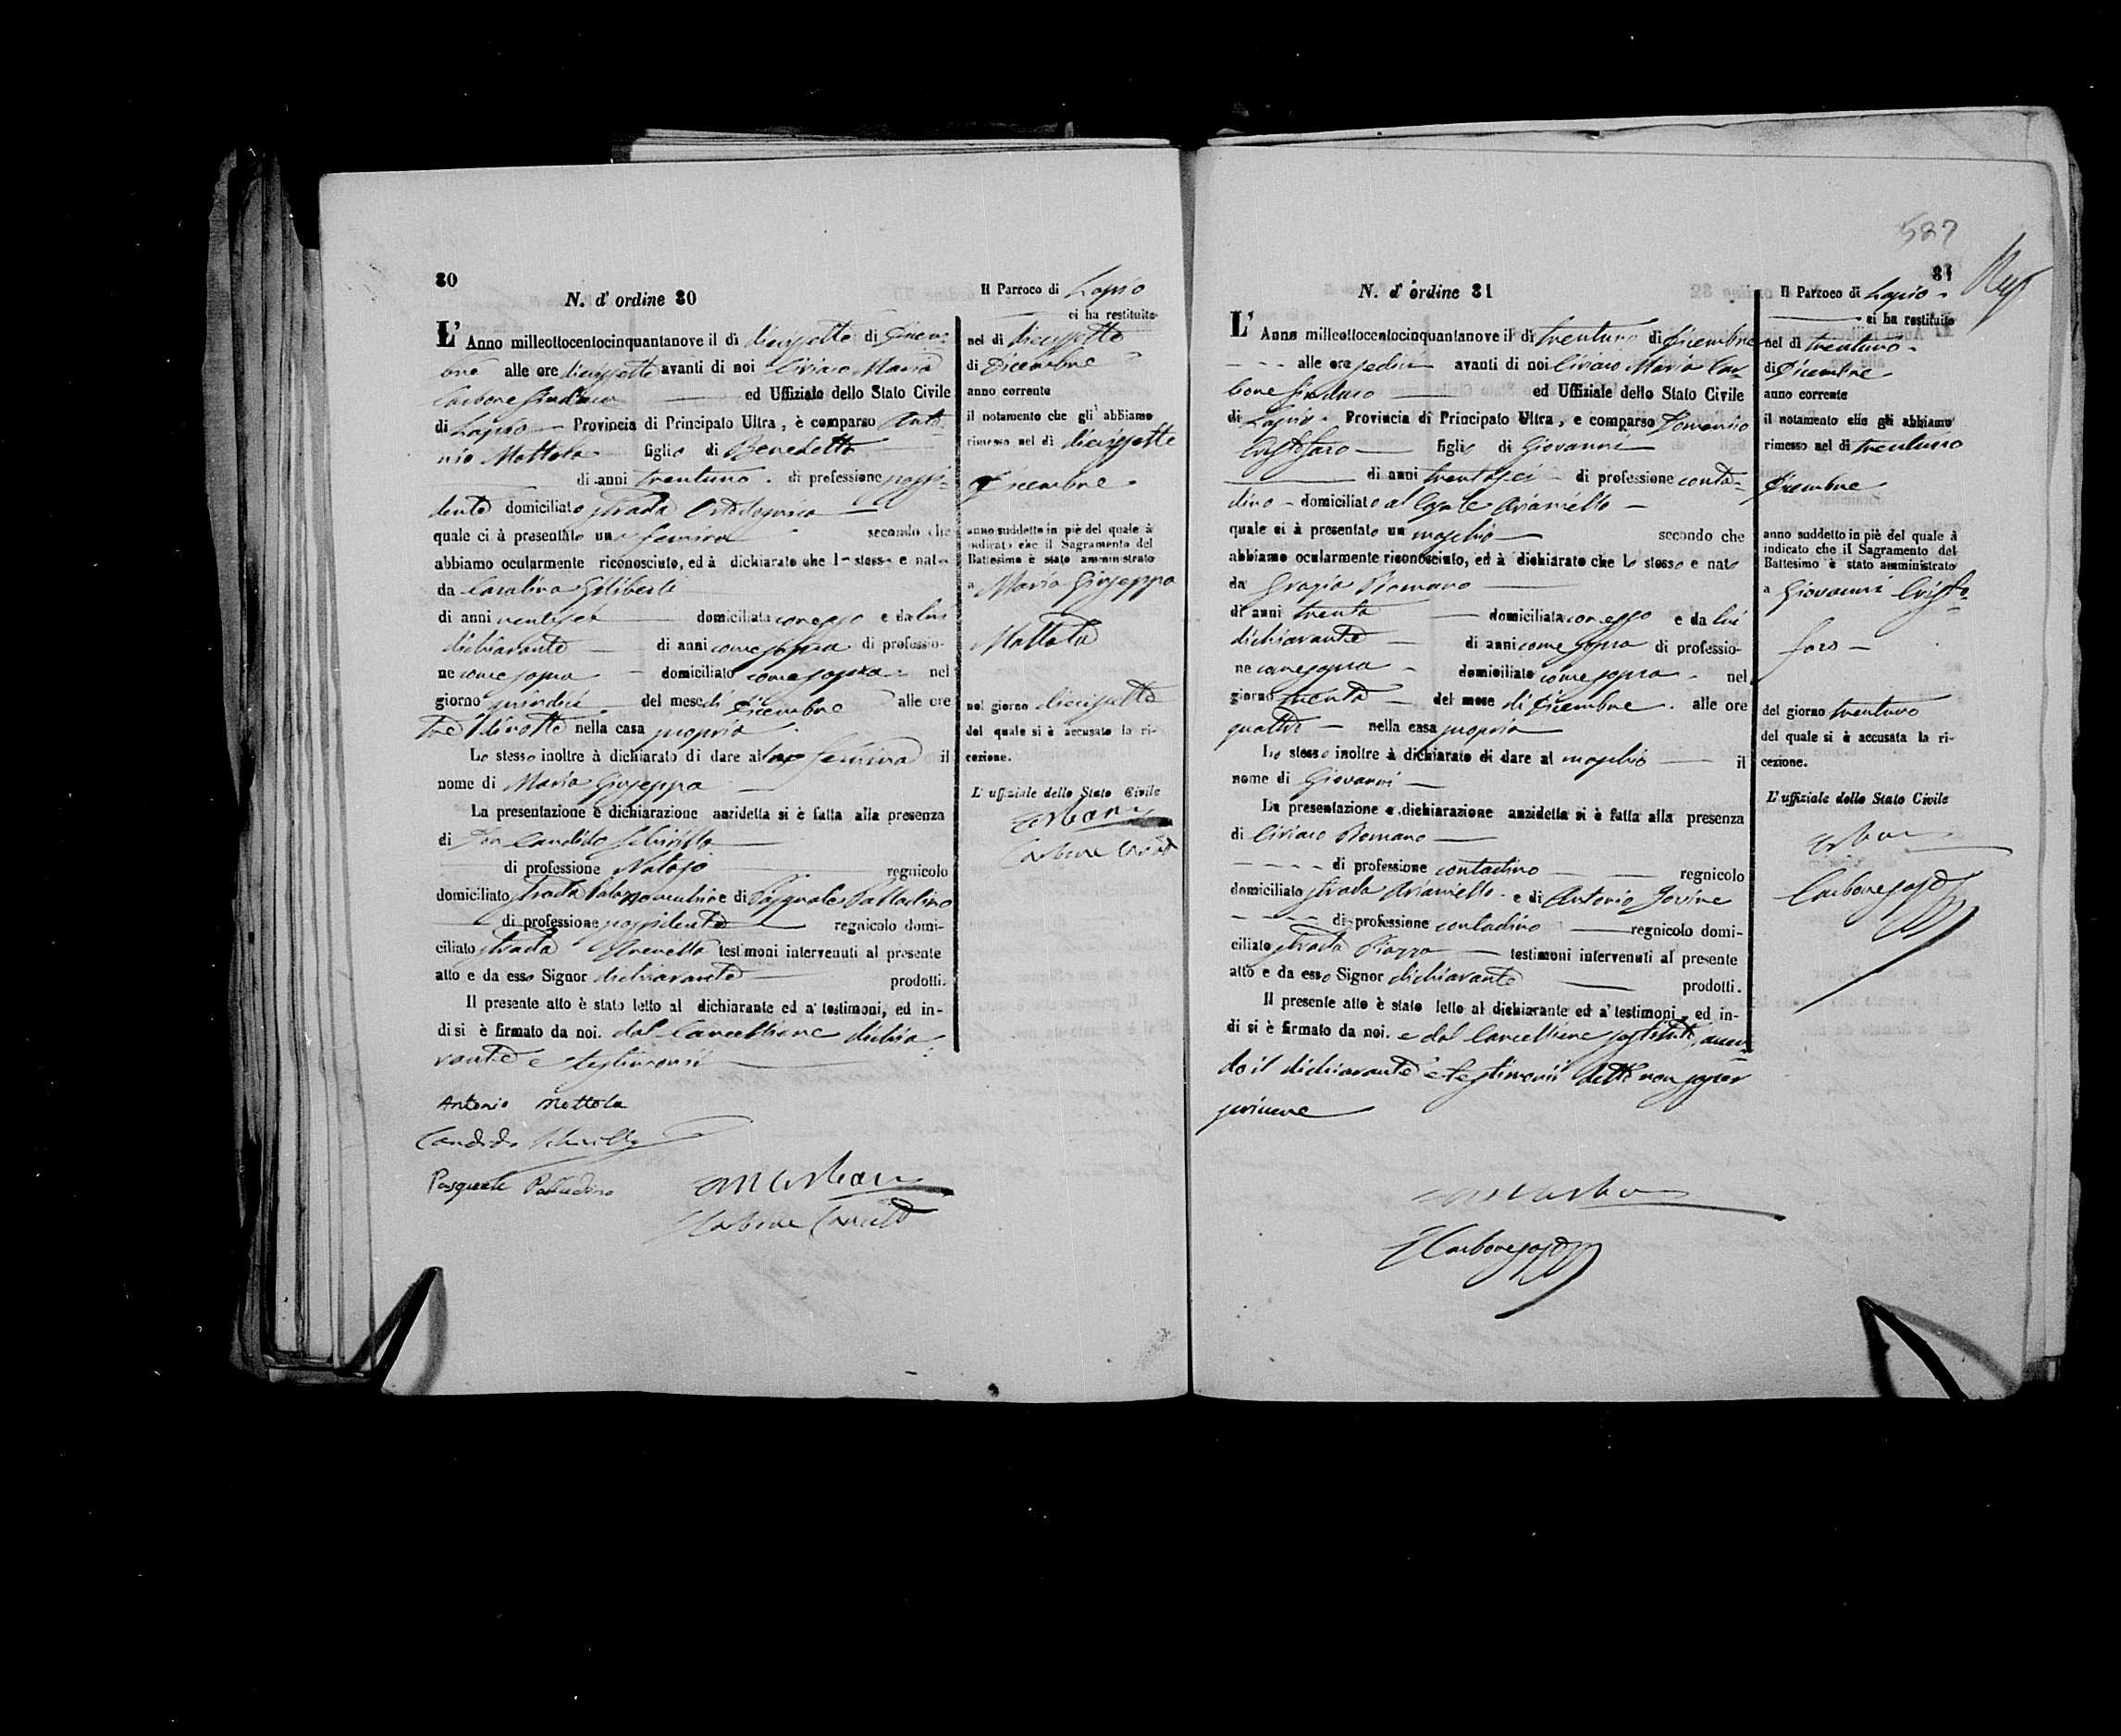 80
N. d' ordine 80
L' Anno millottocentocinquantanove il dì diciassette di Dicem-
bre alle ore diciassette avanti di noi Civiaco Maria
Carbone Sindaco ed Uffiziale dello Stato Civile
di Lapio Provincia di Principato Ultra, è comparso Anto-
nio Mottola figlio di Benedetto
di anni trentuno di professione possi-
dente domiciliato strada
quale ci à presentato una femina secondo che
abbiamo ocularmente riconosciuto, ed à dichiarato che la stessa e nata
da Carolina Giliberti
di anni ventisei domiciliata con esso e da lui
dichiarante di anni come sopra di professio-
ne come sopra domiciliato come sopra nel
giorno quindici del mese di Dicembre alle ore
tre di notte nella casa propria
Lo stesso inoltre à dichiarato di dare alla femina il
nome di Maria Giuseppa
La presentazione e dichiarazione anzidetta si è fatta alla presenza
di Don Candido Schirillo
di professione Notajo regnicolo
domiciliato strada e di Pasquale Palladino
di professione possidente regnicolo domi-
ciliato strada testimoni intervenuti al presente
atto e da esso Signor dichiarante prodotti.
Il presente atto è stato letto al dichiarante ed a' testimoni, ed in-
di si è firmato da noi. dal Cancelliere dichia-
rante e testimonii
Antonio Mottola
Candido Schirillo
Pasquale Palladino
Carbone
Carbone Canc
Il Parroco di Lapio
ci ha restituito
nel dì diciassette
di Dicembre
anno corrente
il notamento che gli abbiamo
rimesso nel dì diciassette
Dicembre
anno suddetto in piè del quale à
indicato che il Sagramento del
Battesimo è stato amministrato
a Maria Giuseppa
Mottola
nel giorno diciassette
del quale si è accusato la ri-
cezione.
L' uffiziale dello Stato Civile
Carbone
Carbone Canc
587
81
N. d' ordine 81
L' Anno millottocentocinquantanove il dì trentuno di Dicembre
alle ore sedici avanti di noi Civiaco Maria Car-
bone Sindaco ed Uffiziale dello Stato Civile
di Lapio Provincia di Principato Ultra, e comparso Domenico
Cristofaro figlio di Giovanni
di anni trentasei di professione conta-
dino domiciliato al Casale Arianiello
quale ci à presentato un maschio secondo che
abbiamo ocularmente riconosciuto, ed à dichiarato che lo stesso e nato
da Grazia Romano
di anni trenta domiciliata con esso e da lui
dichiarante di anni come sopra di professio-
ne come sopra domiciliato come sopra nel
giorno trenta del mese di Dicembre alle ore
quattro nella casa propria
Lo stesso inoltre à dichiarato di dare al maschio il
nome di Giovanni
La presentazione e dichiarazione anzidetta si è fatta alla presenza
di Civiaco Romano
di professione contadino regnicolo
domiciliato strada Arianiello e di Antonio Jovine
di professione contadino regnicolo domi-
ciliato strada Piazza testimoni intervenuti al presente
atto e da esso Signor dichiarante prodotti.
Il presente atto è stato letto al dichiarante ed a' testimoni, ed in-
di si è firmato da noi. e dal Cancelliere sostituto, aven-
do il dichiarante e testimonii detto non saper
scrivere
Carbone
Carbone sost
Il Parroco di Lapio
ci ha restituito
nel dì trentuno
di Dicembre
anno corrente
il notamento che gli abbiamo
rimesso nel dì trentuno
Dicembre
anno suddetto in piè del quale à
indicato che il Sagramento del
Battesimo è stato amministrato
a Giovanni Cristo-
faro
del giorno trentuno
del quale si è accusata la ri-
cezione.
L' uffiziale dello Stato Civile
Carbone sost